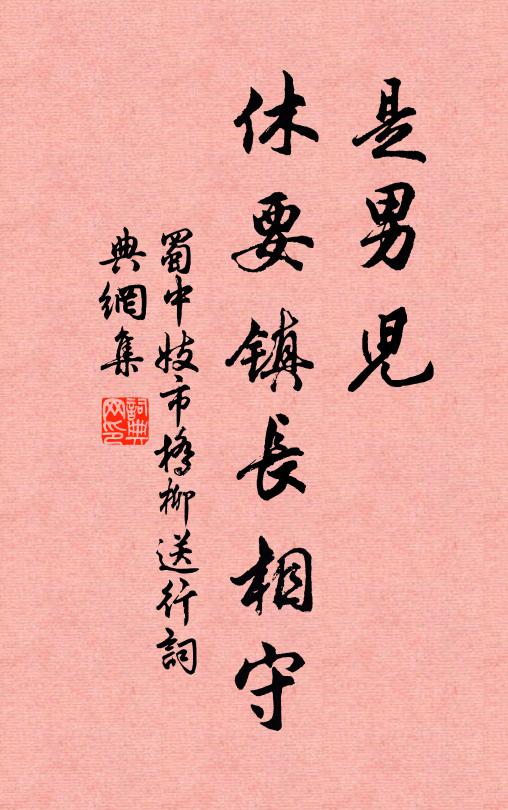 是男兒
休要鎮長相守
蜀中妓市橋柳送行詞
典網集
詞典网印